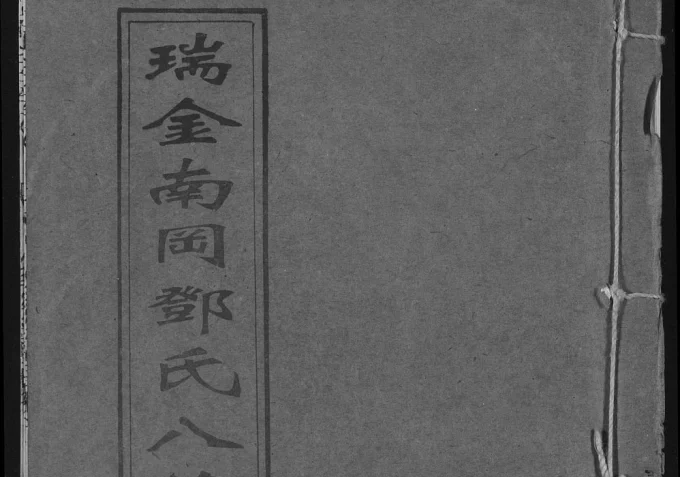 瑞金南岡鄧氏八